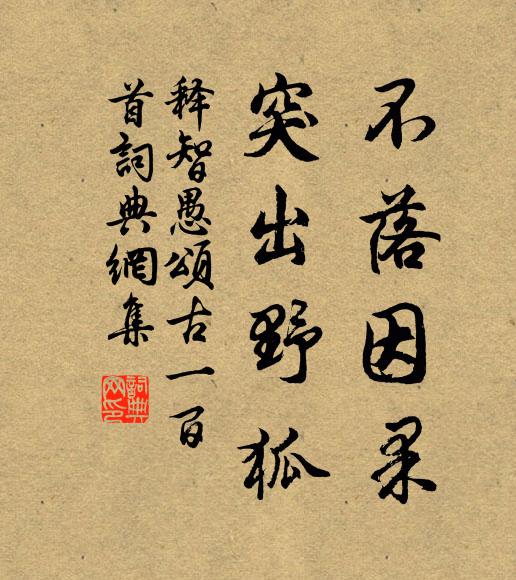 不落因果
突出野狐
释智愚頌古一百
首詞典網集
詞典网印